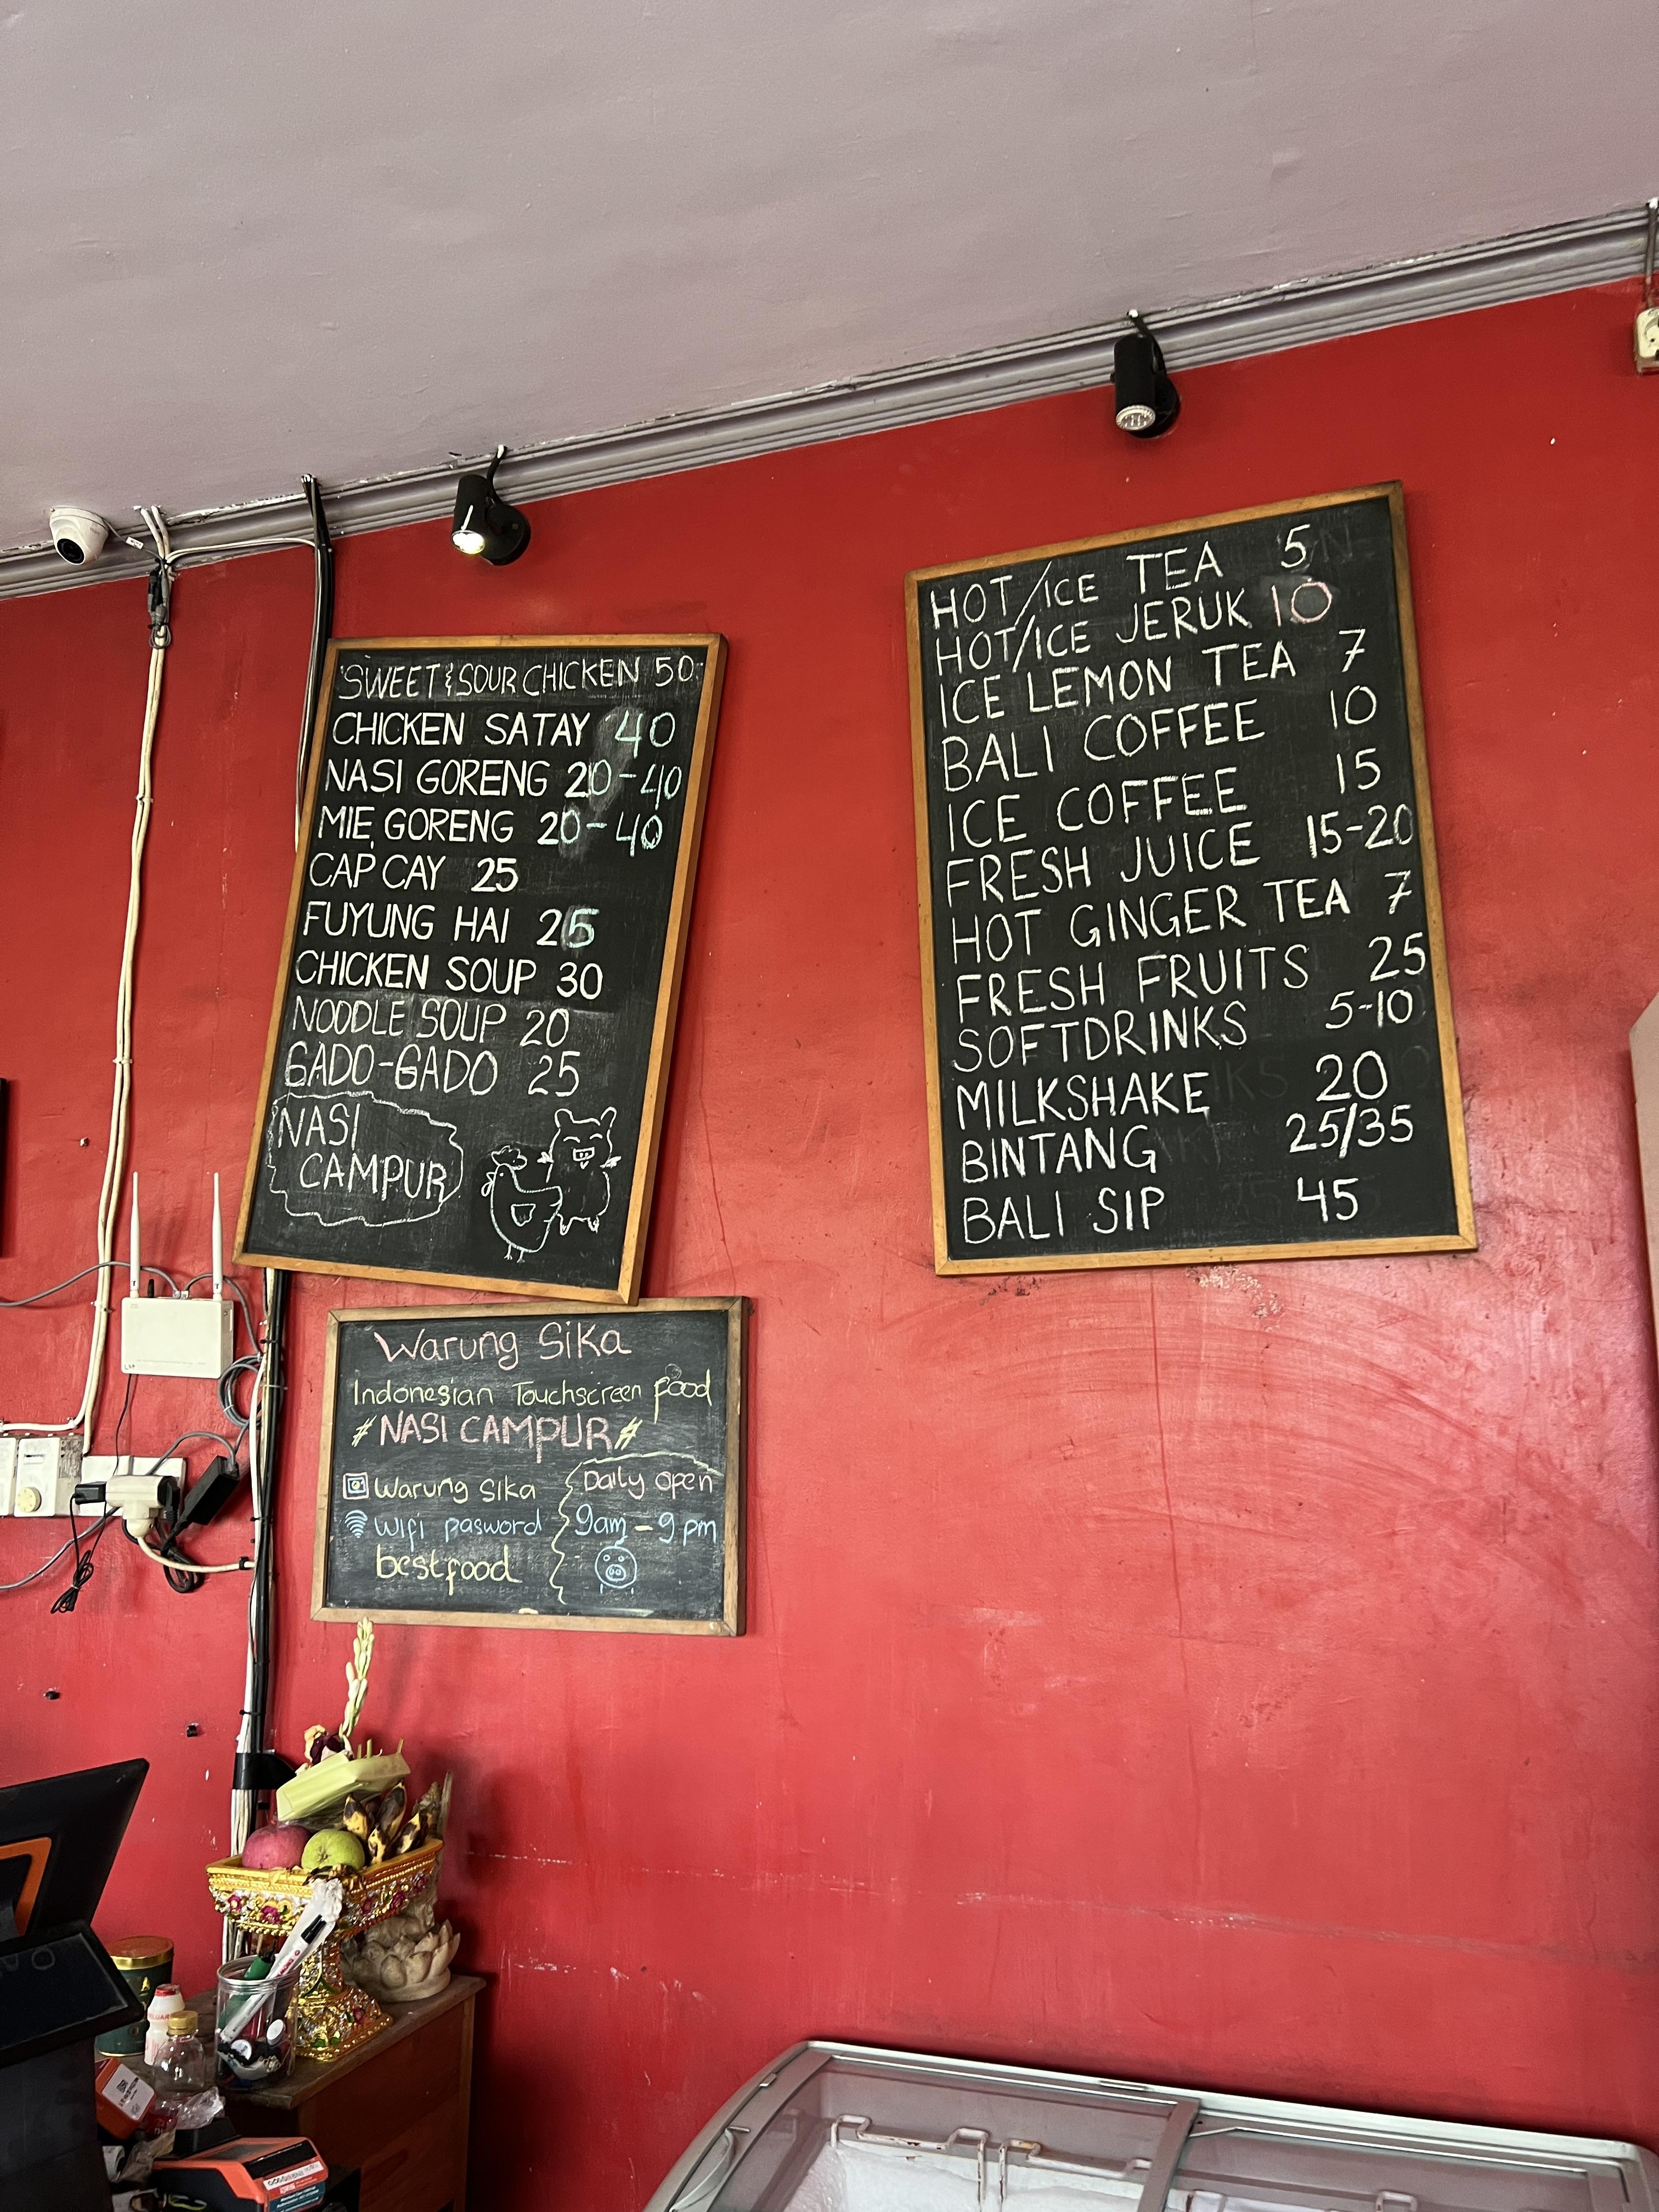 SWEET & SOUR CHICKEN 50
CHICKEN SATAY 40
NASI GORENG 20-40
MIE GORENG 20-40
CAP CAY 25
FUYUNG HAI 25
CHICKEN SOUP 30
NOODLE SOUP 20
GADO-GADO 25
NASI
CAMPUR
HOT/ICE TEA 5
HOT/ICE JERUK 10
ICE LEMON TEA 7
BALI COFFEE 10
ICE COFFEE 15
FRESH JUICE 15-20
HOT GINGER TEA 7
FRESH FRUITS 25
SOFTDRINKS 5-10
MILKSHAKE 20
BINTANG 25/35
BALI SIP 45
Warung Sika
Indonesian Touchscreen food
#NASI CAMPUR#
Warung Sika
Wifi pasword
bestfood
Daily open
9am-9pm